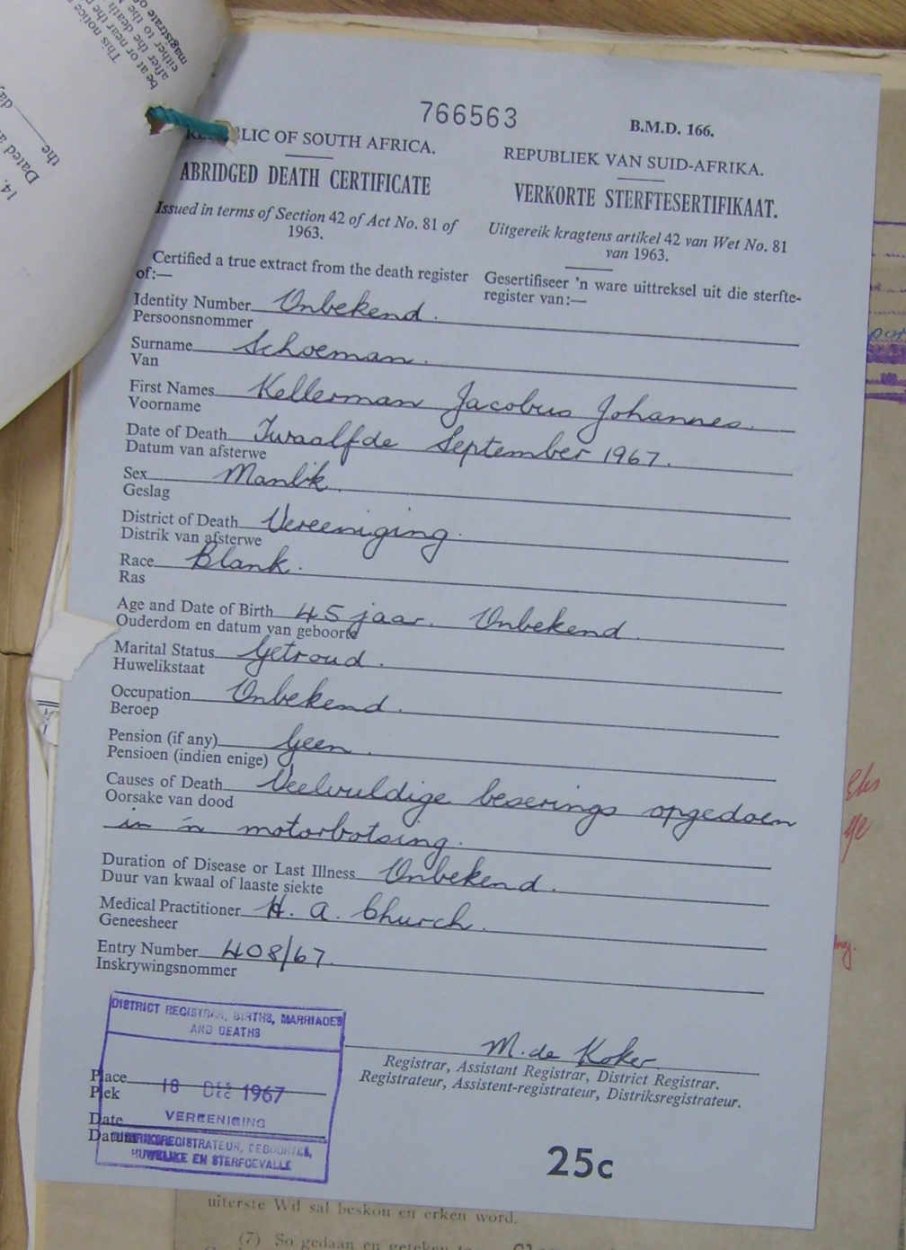 This notice
be at or near the p
either to the
after the death
magistrate o
the
day
Dated a
14.
766563
B.M.D. 166.
REPUBLIC OF SOUTH AFRICA.
ABRIDGED DEATH CERTIFICATE
Issued in terms of Section 42 of Act No. 81 of
1963.
Certified a true extract from the death register
of:—
REPUBLIEK VAN SUID-AFRIKA.
VERKORTE STERFTESERTIFIKAAT.
Uitgereik kragtens artikel 42 van Wet No. 81
van 1963.
Gesertifiseer 'n ware uittreksel uit die sterfte-
register van:—
Identity Number Onbekend.
Persoonsnommer
Surname Schoeman.
Van
First Names Kellerman Jacobus Johannes.
Voorname
Date of Death Twaalfde September 1967.
Datum van afsterwe
Sex Manlik
Geslag
District of Death Vereeniging.
Distrik van afsterwe
Race Blank.
Ras
Age and Date of Birth 45 jaar. Onbekend.
Ouderdom en datum van geboorte
Marital Status Getroud.
Huwelikstaat
Occupation Onbekend.
Beroep
Pension (if any) Geen.
Pensioen (indien enige)
Causes of Death Veelvuldige beserings opgedoen
Oorsake van dood
in 'n motorbotsing.
Duration of Disease or Last Illness Onbekend.
Duur van kwaal of laaste siekte
Medical Practitioner H. A. Church.
Geneesheer
Entry Number 408/67.
Inskrywingsnommer
DISTRICT REGISTRAR, BIRTHS, MARRIAGES
AND DEATHS
Place
Plek
18 DES 1967
VEREENIGING
Date
Datum
DISTRIKSREGISTRATEUR, GEBOORTES,
HUWELIKE EN STERFGEVALLE
M. de Koker
Registrar, Assistant Registrar, District Registrar.
Registrateur, Assistent-registrateur, Distriksregistrateur.
25c
uiterste Wil sal beskou en erken word.
(7) So gedaan en geteken